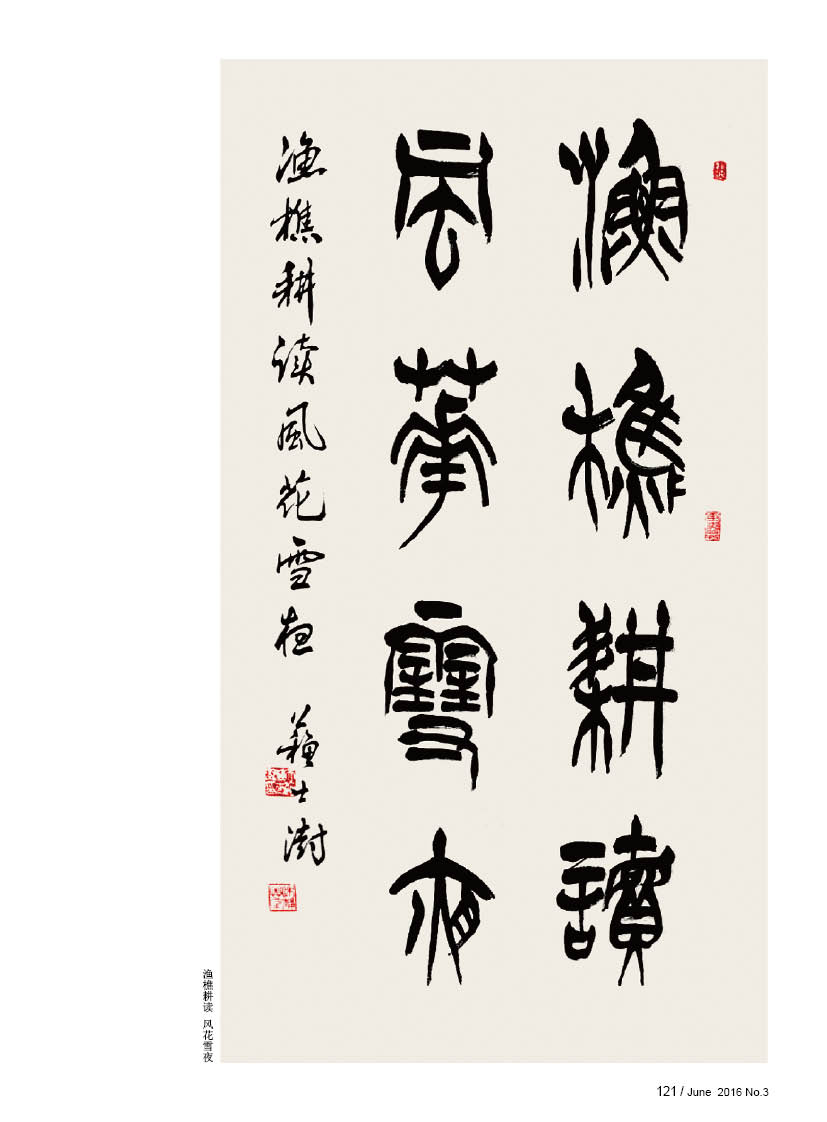 漁樵耕讀
風華雪夜
渔樵耕读風花雪夜 蘇士澍
渔樵耕读 风花雪夜
121 / June 2016 No.3